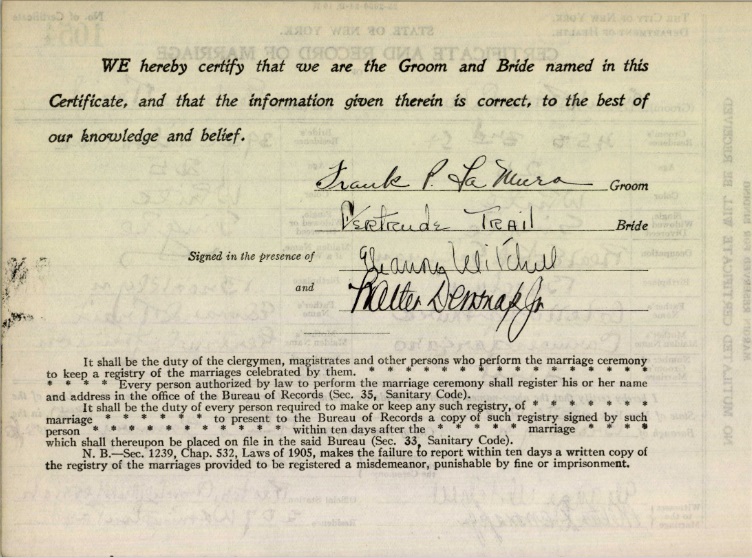 WE hereby certify that we are the Groom and Bride named in this
Certificate, and that the information given therein is correct, to the best of
our knowledge and belief.
Frank P. La Mura Groom
Gertrude Trail Bride
Signed in the presence of Eleanor Mitchell
and Walter Densnap Jr
It shall be the duty of the clergymen, magistrates and other persons who perform the marriage ceremony
to keep a registry of the marriages celebrated by them. * * * * * * * * * * * * * *
* * * * Every person authorized by law to perform the marriage ceremony shall register his or her name
and address in the office of the Bureau of Records (Sec. 35, Sanitary Code).
It shall be the duty of every person required to make or keep any such registry, of * * * * * *
marriage * * * * * * to present to the Bureau of Records a copy of such registry signed by such
person * * * * * * * * * * within ten days after the * * * * * marriage * * * *
which shall thereupon be placed on file in the said Bureau (Sec. 33, Sanitary Code).
N. B.—Sec. 1239, Chap. 532, Laws of 1905, makes the failure to report within ten days a written copy of
the registry of the marriages provided to be registered a misdemeanor, punishable by fine or imprisonment.